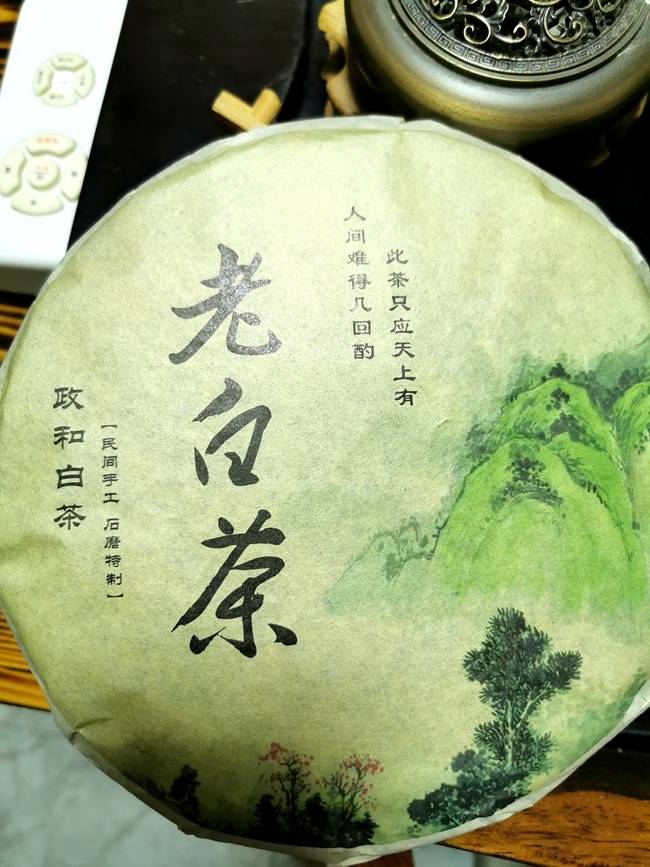 此茶只应天上有
人间难得几回酌
老白茶
【民间手工 石磨特制】
政和白茶